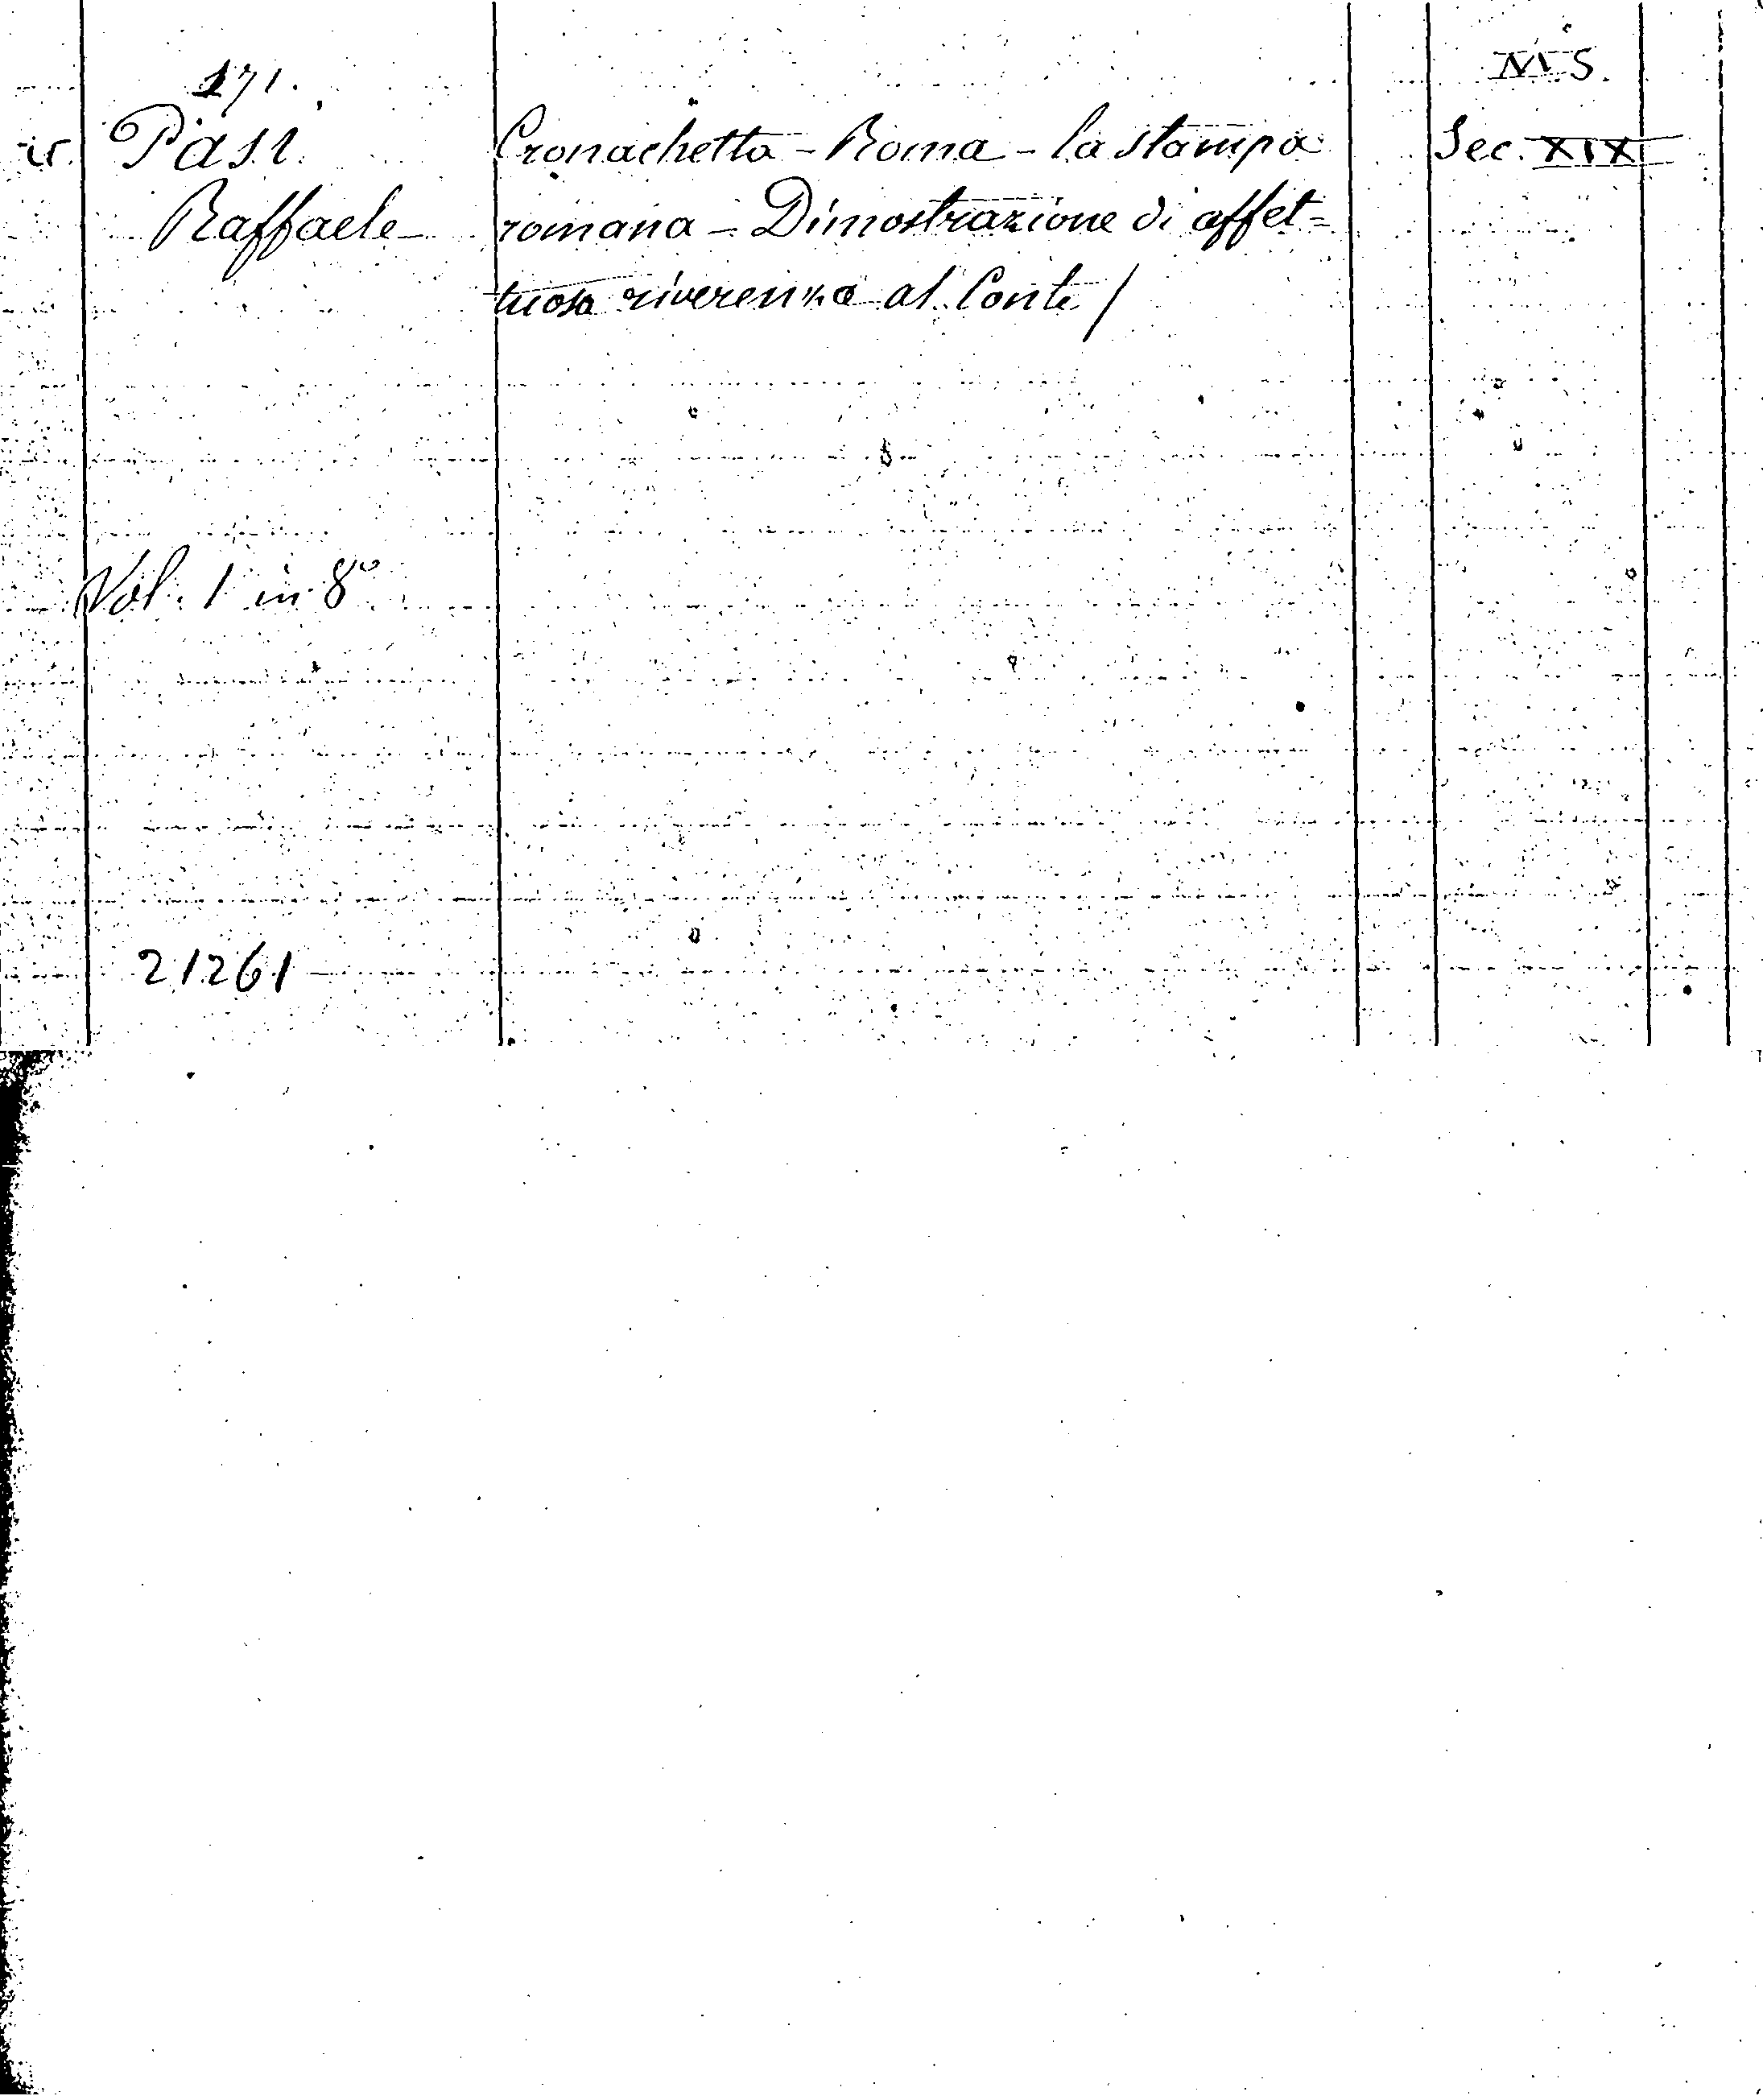 171.
MS.
Pasi
Cronachetta - Roma - la stampa
Sec. XIX
Raffaele
romana - Dimostrazione di affet=
tuosa riverenza al Conte /
Vol. 1 in 8°
21261